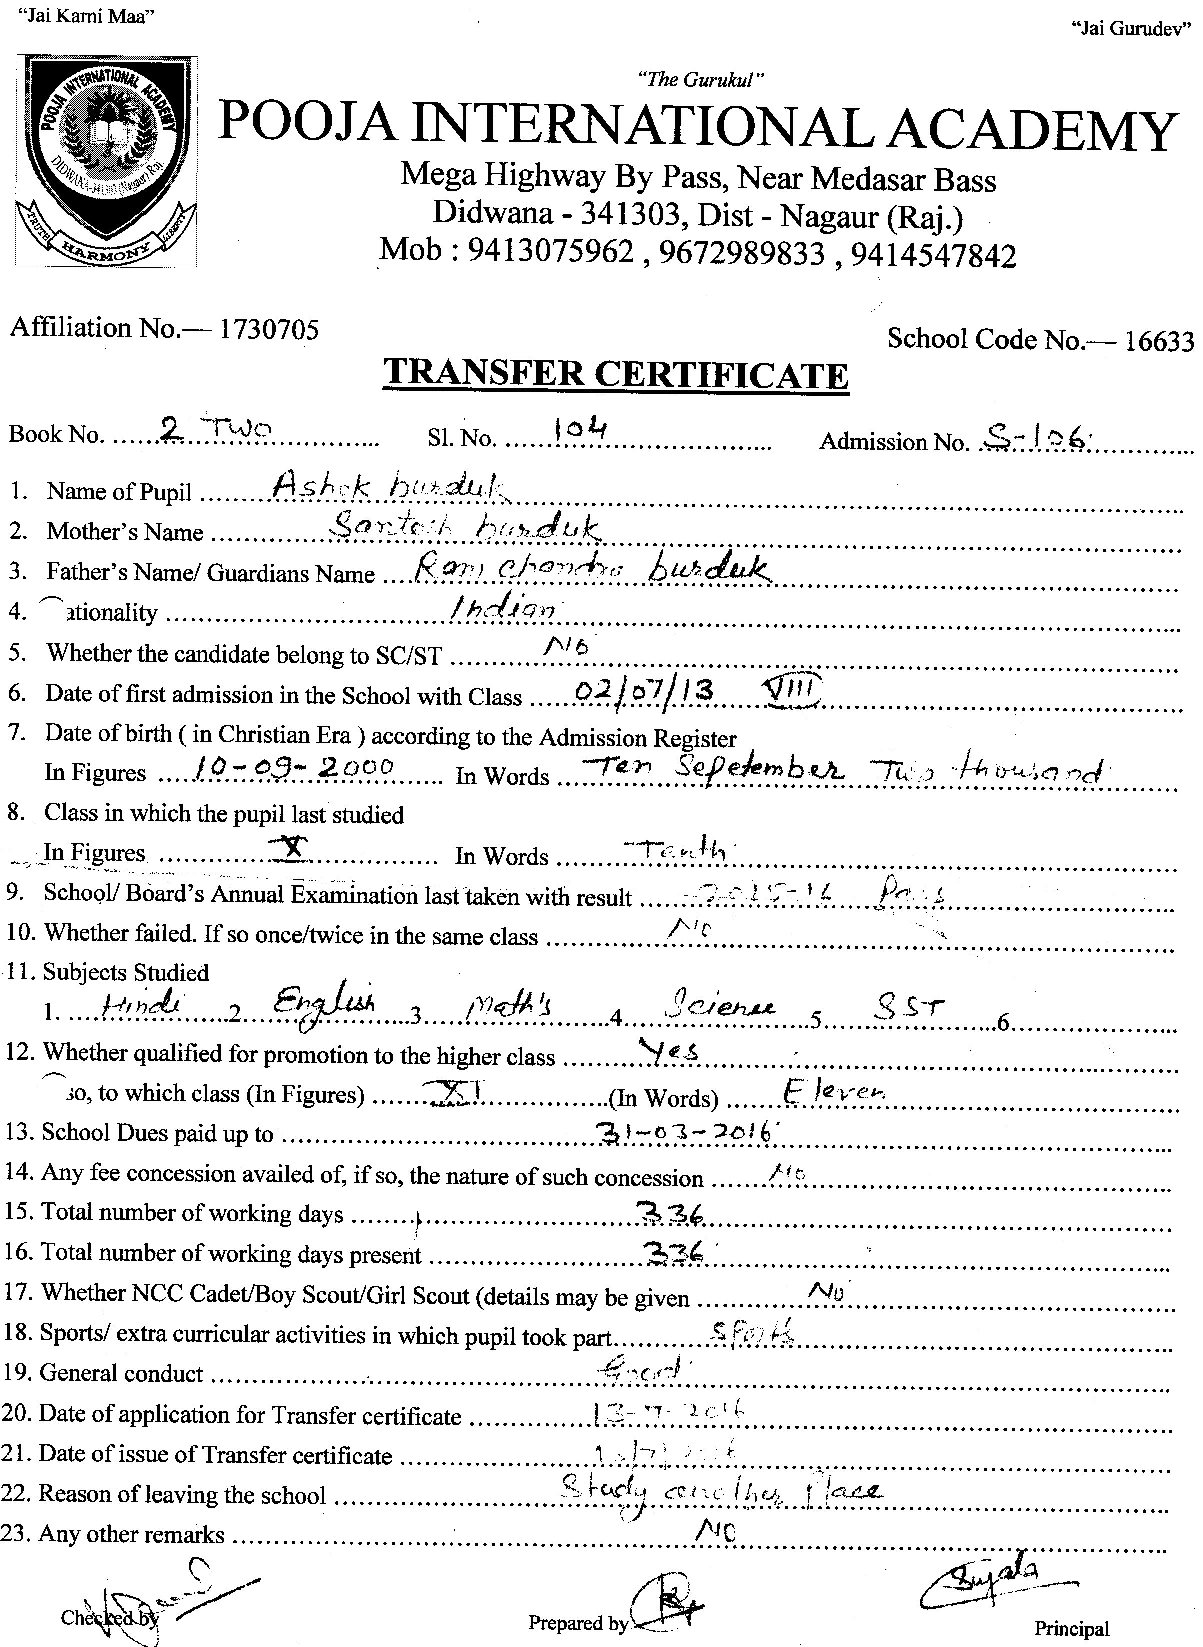 "Jai Karni Maa"
"Jai Gurudev"
"The Gurukul"
POOJA INTERNATIONAL ACADEMY
POOJA INTERNATIONAL ACADEMY
Mega Highway By Pass, Near Medasar Bass
Didwana - 341303, Dist - Nagaur (Raj.)
Mob : 9413075962 , 9672989833 , 9414547842
HARMONY
Affiliation No.— 1730705
School Code No.— 16633
TRANSFER CERTIFICATE
Book No. ......2 Two............ Sl. No. ......104.................... Admission No. .S-106.............
1. Name of Pupil ........Ashok burduk........
2. Mother's Name .............Santosh burduk........
3. Father's Name/ Guardians Name ....Ram Chandra burduk........
4. ationality ........Indian........
5. Whether the candidate belong to SC/ST ........No........
6. Date of first admission in the School with Class ......02/07/13 VIII........
7. Date of birth ( in Christian Era ) according to the Admission Register
In Figures ....10-09-2000...... In Words ....Ten Sepetember Two thousand
8. Class in which the pupil last studied
In Figures ........X........ In Words ........Tenth........
9. School/ Board's Annual Examination last taken with result ......2015-16 Pass........
10. Whether failed. If so once/twice in the same class ........No........
11. Subjects Studied
1. ....Hindi......2....English....3....Math's......4....Science....5....SST......6........
12. Whether qualified for promotion to the higher class ........Yes........
so, to which class (In Figures) ......XI........(In Words) ......Eleven........
13. School Dues paid up to ........31-03-2016........
14. Any fee concession availed of, if so, the nature of such concession ......No........
15. Total number of working days ........336........
16. Total number of working days present ........336........
17. Whether NCC Cadet/Boy Scout/Girl Scout (details may be given ........No........
18. Sports/ extra curricular activities in which pupil took part........Sports........
19. General conduct ........Good........
20. Date of application for Transfer certificate ........13-7-2016........
21. Date of issue of Transfer certificate ........
22. Reason of leaving the school ........Study another Place........
23. Any other remarks ........No........
Sujata
Checked by
Prepared by
Principal